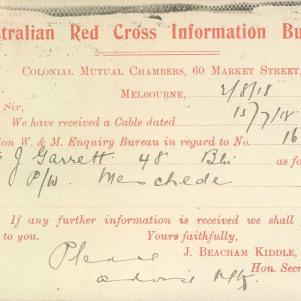 stralian Red Cross Information Bu
COLONIAL MUTUAL CHAMBERS, 60 MARKET STREET,
MELBOURNE, 2/8/18
Sir,
We have received a Cable dated 15/7/18
on W. & M. Enquiry Bureau in regard to No. 16
J Garrett 48 Bn as fo
P/W. Meschede
If any further information is received we shall
to you. Yours faithfully,
J. BEACHAM KIDDLE,
Please Hon. Secr
advise